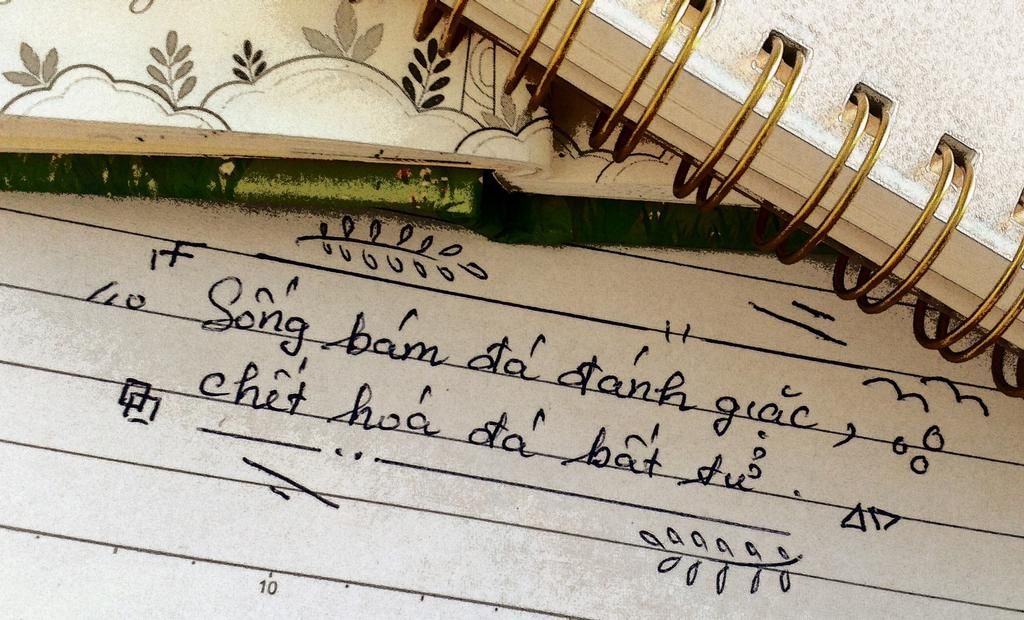 Sống bám đá đánh giặc,
chết hoá đá bất tử.
10